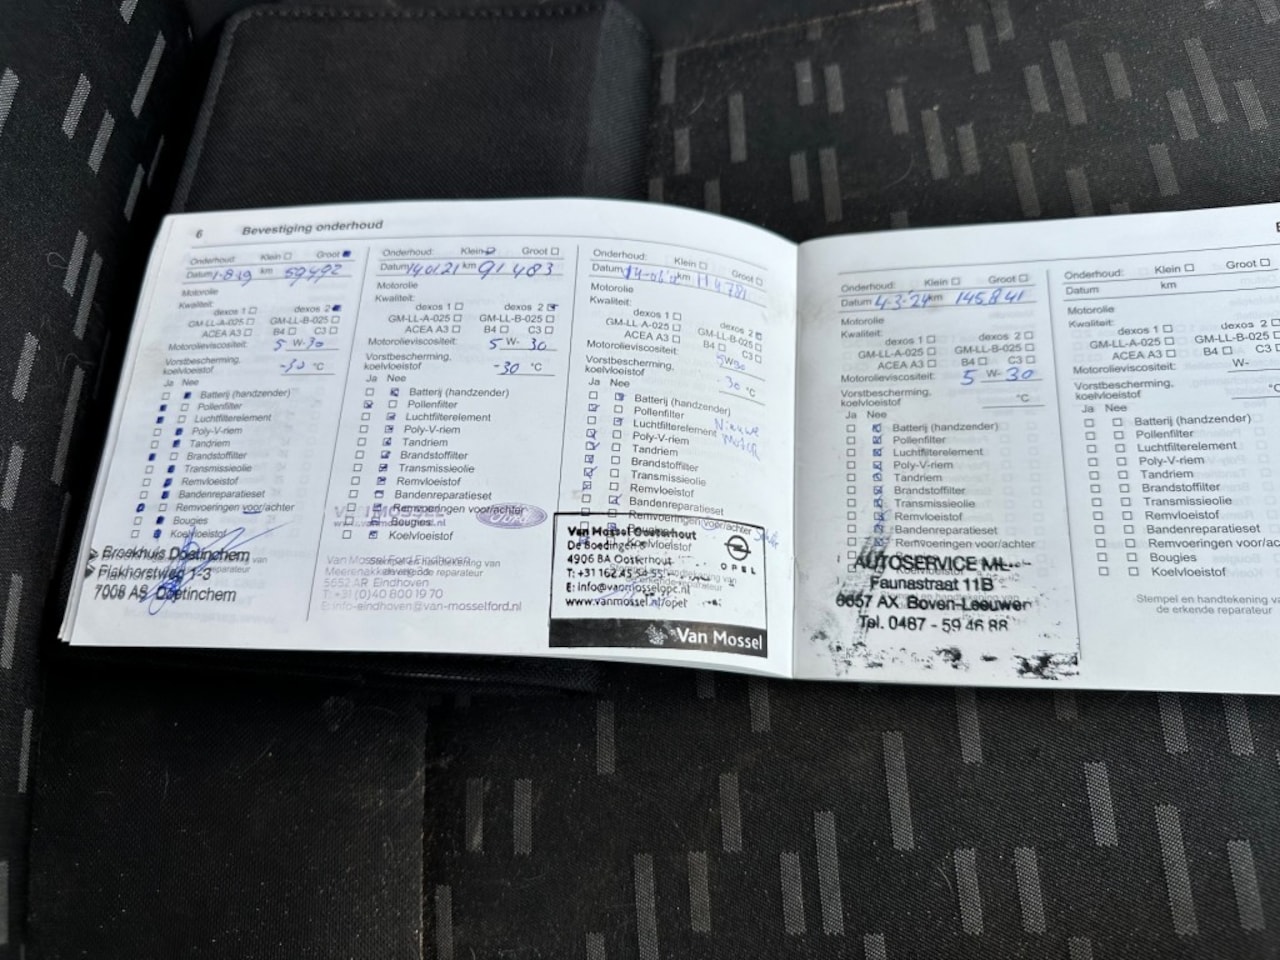 6 Bevestiging onderhoud
Onderhoud: Klein Groot
Datum 1-8-19 km 59492
Motorolie
Kwaliteit:
dexos 1 dexos 2
GM-LL-A-025 GM-LL-B-025
ACEA A3 B4 C3
Motorolieviscositeit: 5 W- 30
Vorstbescherming,
koelvloeistof -30 °C
Ja Nee
Batterij (handzender)
Pollenfilter
Luchtfilterelement
Poly-V-riem
Tandriem
Brandstoffilter
Transmissieolie
Remvloeistof
Bandenreparatieset
Remvoeringen voor/achter
Bougies
Koelvloeistof
Broekhuis Doetinchem
Plakhorstweg 1-3
7008 AS Doetinchem
Onderhoud: Klein Groot
Datum 140121 km 91483
Motorolie
Kwaliteit:
dexos 1 dexos 2
GM-LL-A-025 GM-LL-B-025
ACEA A3 B4 C3
Motorolieviscositeit: 5 W- 30
Vorstbescherming,
koelvloeistof -30 °C
Ja Nee
Batterij (handzender)
Pollenfilter
Luchtfilterelement
Poly-V-riem
Tandriem
Brandstoffilter
Transmissieolie
Remvloeistof
Bandenreparatieset
Remvoeringen voor/achter
Bougies
Koelvloeistof
Ford
Van Mossel Ford Eindhoven
5652 AR Eindhoven
T: +31 (0)40 800 19 70
E: info-eindhoven@van-mosselford.nl
Onderhoud: Klein Groot
Datum km
Motorolie
Kwaliteit:
dexos 1 dexos 2
GM-LL-A-025 GM-LL-B-025
ACEA A3 B4 C3
Motorolieviscositeit: 5W30
Vorstbescherming,
koelvloeistof -30 °C
Ja Nee
Batterij (handzender)
Pollenfilter
Luchtfilterelement Nieuwe
Poly-V-riem motor
Tandriem
Brandstoffilter
Transmissieolie
Remvloeistof
Bandenreparatieset
Remvoeringen voor/achter
Bougies
Koelvloeistof
Van Mossel Oosterhout
De Boedingen 8
4906 BA Oosterhout
OPEL
E: info@vanmosselopc.nl
www.vanmossel.nl/opel
Van Mossel
Onderhoud: Klein Groot
Datum 4-3-24 km 145841
Motorolie
Kwaliteit:
dexos 1 dexos 2
GM-LL-A-025 GM-LL-B-025
ACEA A3 B4 C3
Motorolieviscositeit: 5 W- 30
Vorstbescherming,
koelvloeistof °C
Ja Nee
Batterij (handzender)
Pollenfilter
Luchtfilterelement
Poly-V-riem
Tandriem
Brandstoffilter
Transmissieolie
Remvloeistof
Bandenreparatieset
Remvoeringen voor/achter
AUTOSERVICE
Faunastraat 11B
6657 AX Boven-Leeuwen
Tel. 0487 - 59 46 88
Onderhoud: Klein Groot
Datum km
Motorolie
Kwaliteit:
dexos 1 dexos 2
GM-LL-A-025 GM-LL-B-025
ACEA A3 B4 C3
Motorolieviscositeit: W-
Vorstbescherming,
koelvloeistof
Ja Nee
Batterij (handzender)
Pollenfilter
Luchtfilterelement
Poly-V-riem
Tandriem
Brandstoffilter
Transmissieolie
Remvloeistof
Bandenreparatieset
Remvoeringen voor/achter
Bougies
Koelvloeistof
Stempel en handtekening
de erkende reparateur